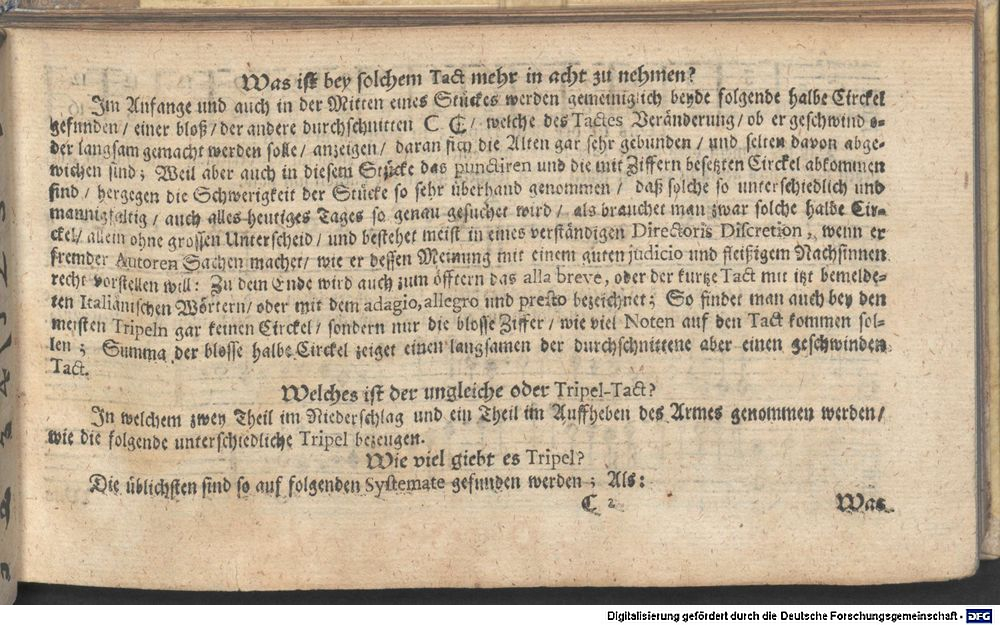 Was ist bey solchem Tact mehr in acht zu nehmen?
Im Anfange und auch in der Mitten eines Stückes werden gemeiniglich beyde folgende halbe Circkel
gefunden / einer bloß / der andere durchschnitten C ₵ / welche des Tactes Veränderung / ob er geschwind o-
der langsam gemacht werden solle / anzeigen / daran sich die Alten gar sehr gebunden / und selten davon abge-
wichen sind; Weil aber auch in diesem Stücke das punctiren und die mit Ziffern besetzten Circkel abkommen
sind / hergegen die Schwerigkeit der Stücke so sehr überhand genommen / daß solche so unterschiedlich und
mannigfaltig / auch alles heutiges Tages so genau gesuchet wird / als brauchet man zwar solche halbe Cir-
ckel / allein ohne grossen Unterscheid / und bestehet meist in eines verständigen Directoris Discretion, wenn er
fremder Autoren Sachen machet / wie er dessen Meinung mit einem guten judicio und fleißigem Nachsinnen
recht vorstellen will: Zu dem Ende wird auch zum öfftern das alla breve, oder der kurtze Tact mit itzt bemelde-
ten Italiänischen Wörtern / oder mit dem adagio, allegro und presto bezeichnet; So findet man auch bey den
meisten Tripeln gar keinen Circkel / sondern nur die blosse Ziffer / wie viel Noten auf den Tact kommen sol-
len; Summa der blosse halbe Circkel zeiget einen langsamen der durchschnittene aber einen geschwinden
Tact.
Welches ist der ungleiche oder Tripel-Tact?
In welchem zwey Theil im Niederschlag und ein Theil im Auffheben des Armes genommen werden /
wie die folgende unterschiedliche Tripel bezeugen.
Wie viel giebt es Tripel?
Die üblichsten sind so auf folgenden Systemate gefunden werden; Als:
C 2 Was
Digitalisierung gefördert durch die Deutsche Forschungsgemeinschaft - DFG